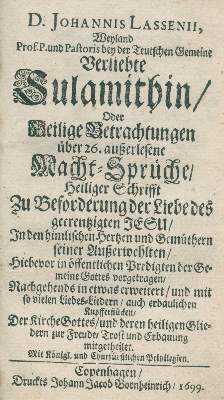 D. JOHANNIS LASSENII,
Weyland
Prof. P. und Pastoris bey der Teutschen Gemeine
Verliebte
Sulamithin/
Oder
Heilige Betrachtungen
über 26. außerlesene
Macht-Sprüche/
Heiliger Schrifft
Zu Beforderung der Liebe des
gecreutzigten JESU/
In den himlischen Hertzen und Gemüthern
seiner Außerwehlten/
Hiebevor in öffentlichen Predigten der Ge-
meine Gottes vorgetragen/
Nachgehends in etwas erweitert/ und mit
so vielen Liebes-Liedern/ auch erbaulichen
Kupfferstücken/
Der Kirche Gottes/ und deren heiligen Glie-
dern zur Freude Trost und Erbauung
mitgetheilet.
Mit Königl. und Churfürstlichen Privilegien.
Copenhagen/
Druckts Johann Jacob Bornheinrich/ 1699.